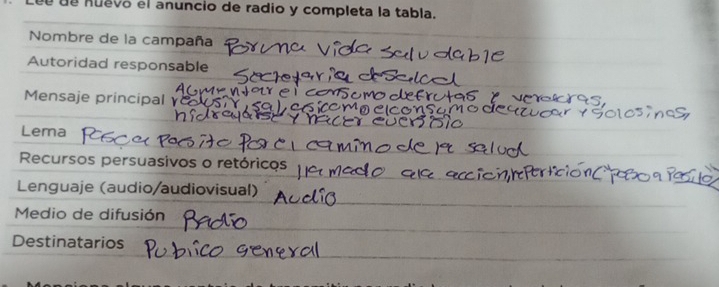 Lee de nuevo el anuncio de radio y completa la tabla.
Nombre de la campaña Por una vida saludable
Autoridad responsable Secretaria de salud
Aumentar el consumo de frutas y verduras,
Mensaje principal reducir sal, así como el consumo de azúcar y golosinas,
hidratarse y hacer ejercicio
Lema Paso a pasito por el camino de la salud
Recursos persuasivos o retóricos llamado a la acción, repetición (paso a pasito)
Lenguaje (audio/audiovisual) Audio
Medio de difusión Radio
Destinatarios Publico general